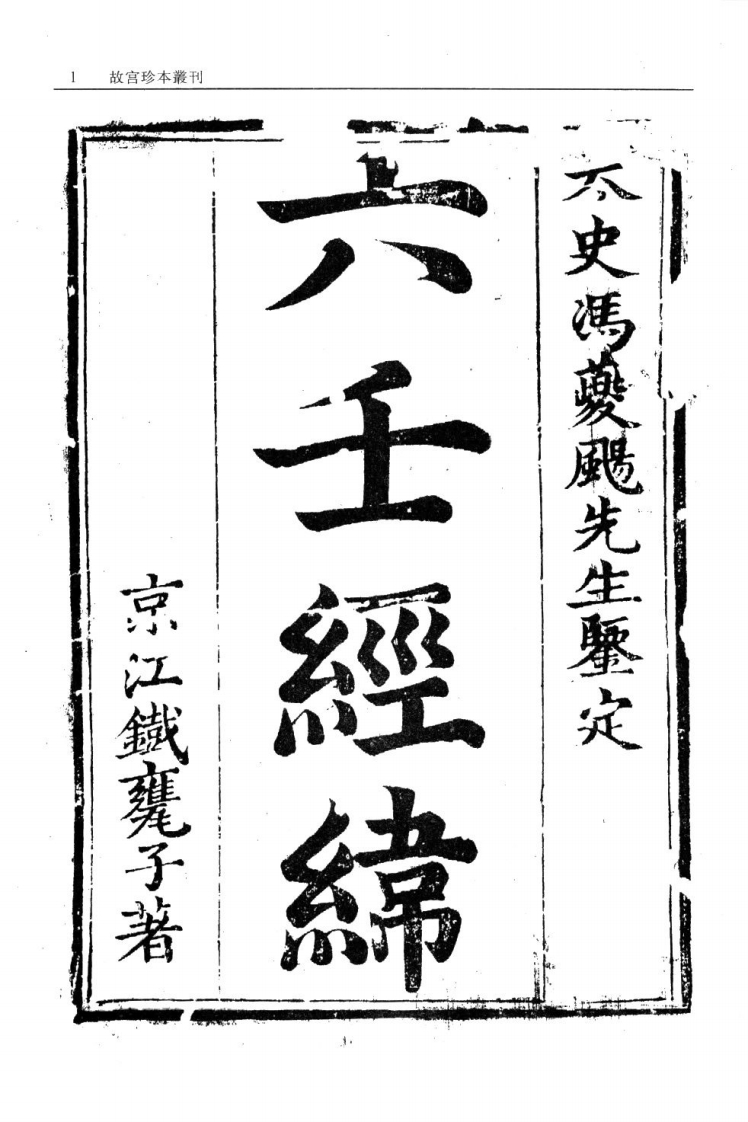 1 故宫珍本叢刊
太史馮夔颺先生鑒定
六壬經緯
京江鐵甕子著